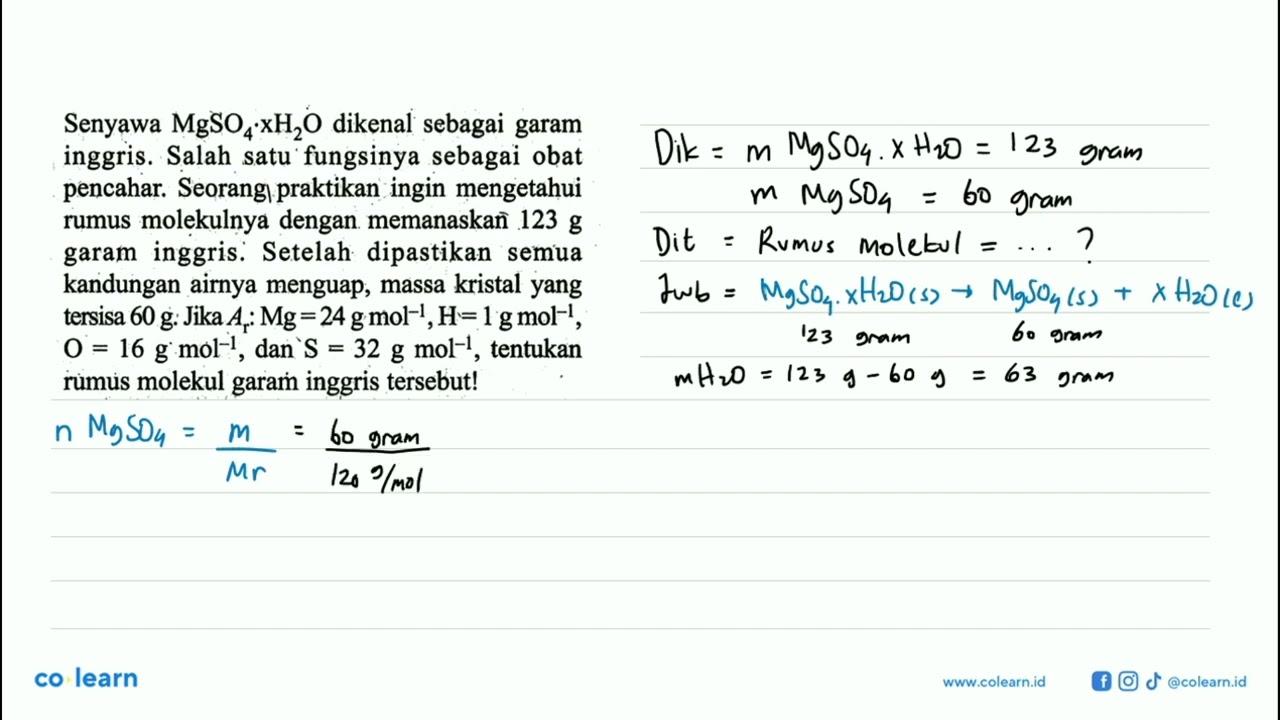 Senyawa MgSO₄·xH₂O dikenal sebagai garam
inggris. Salah satu fungsinya sebagai obat
pencahar. Seorang praktikan ingin mengetahui
rumus molekulnya dengan memanaskan 123 g
garam inggris. Setelah dipastikan semua
kandungan airnya menguap, massa kristal yang
tersisa 60 g. Jika Aᵣ: Mg = 24 g mol⁻¹, H = 1 g mol⁻¹,
O = 16 g mol⁻¹, dan S = 32 g mol⁻¹, tentukan
rumus molekul garam inggris tersebut!
Dik = m MgSO₄ . x H₂O = 123 gram
m MgSO₄ = 60 gram
Dit = Rumus molekul = ... ?
Jwb = MgSO₄.xH₂O(s) → MgSO₄(s) + x H₂O(l)
123 gram 60 gram
mH₂O = 123 g - 60 g = 63 gram
n MgSO₄ = m / Mr = 60 gram / 120 g/mol
co learn
www.colearn.id
@colearn.id